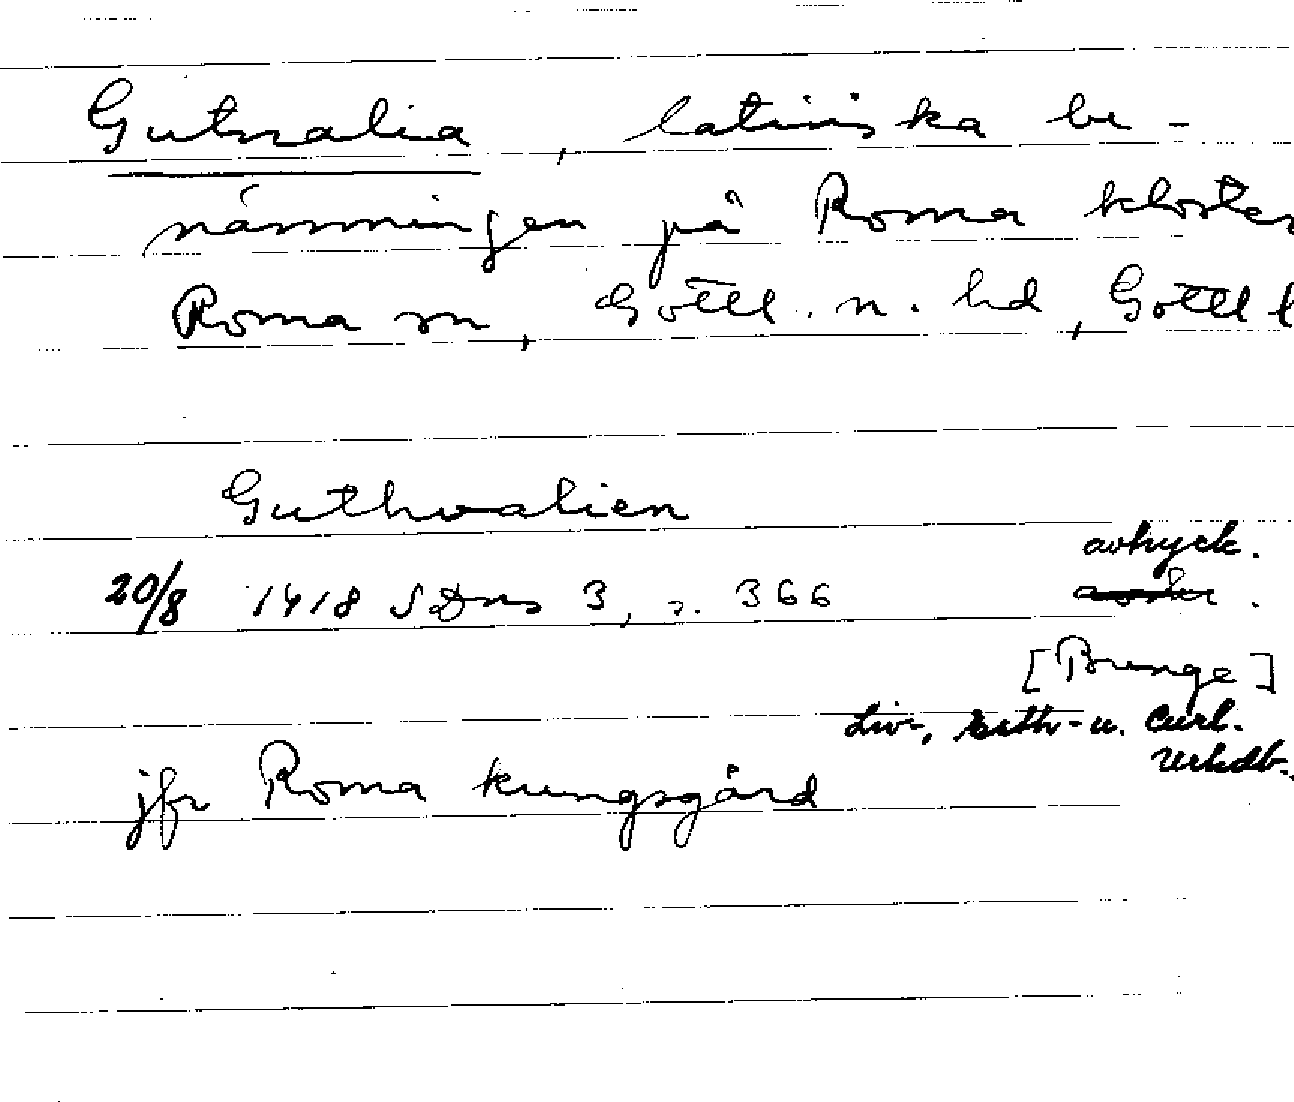 Gutnalia, latinska be-
nämningen på Roma kloster
Roma sn, Gottl. n. hd, Gottl l
Guthvalien
avtryck.
20/8 1418 SDns 3, s. 366
[Bunge]
Liv-, Esth- u. Curl.
Urkdb.
jfr Roma kungsgård